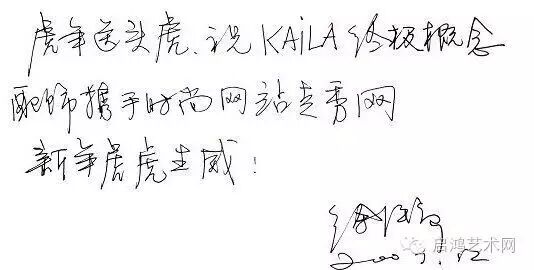 虎年送头虎.祝KAiLA终极概念
配饰携手时尚网站走秀网
新年虎虎生威！
启鸿艺术网